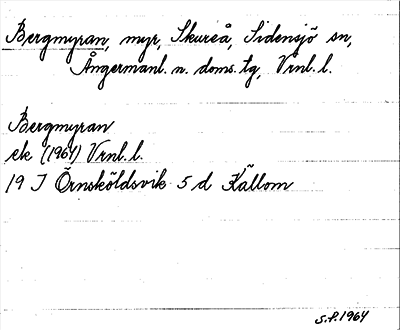 Bergmyran, myr, Skureå, Sidensjö sn,
Ångermanl. n. doms. tg, Vrnl. l.
Bergmyran
ek (1964) Vrnl. l.
19 J Örnsköldsvik 5 d Källom
S.P. 1964